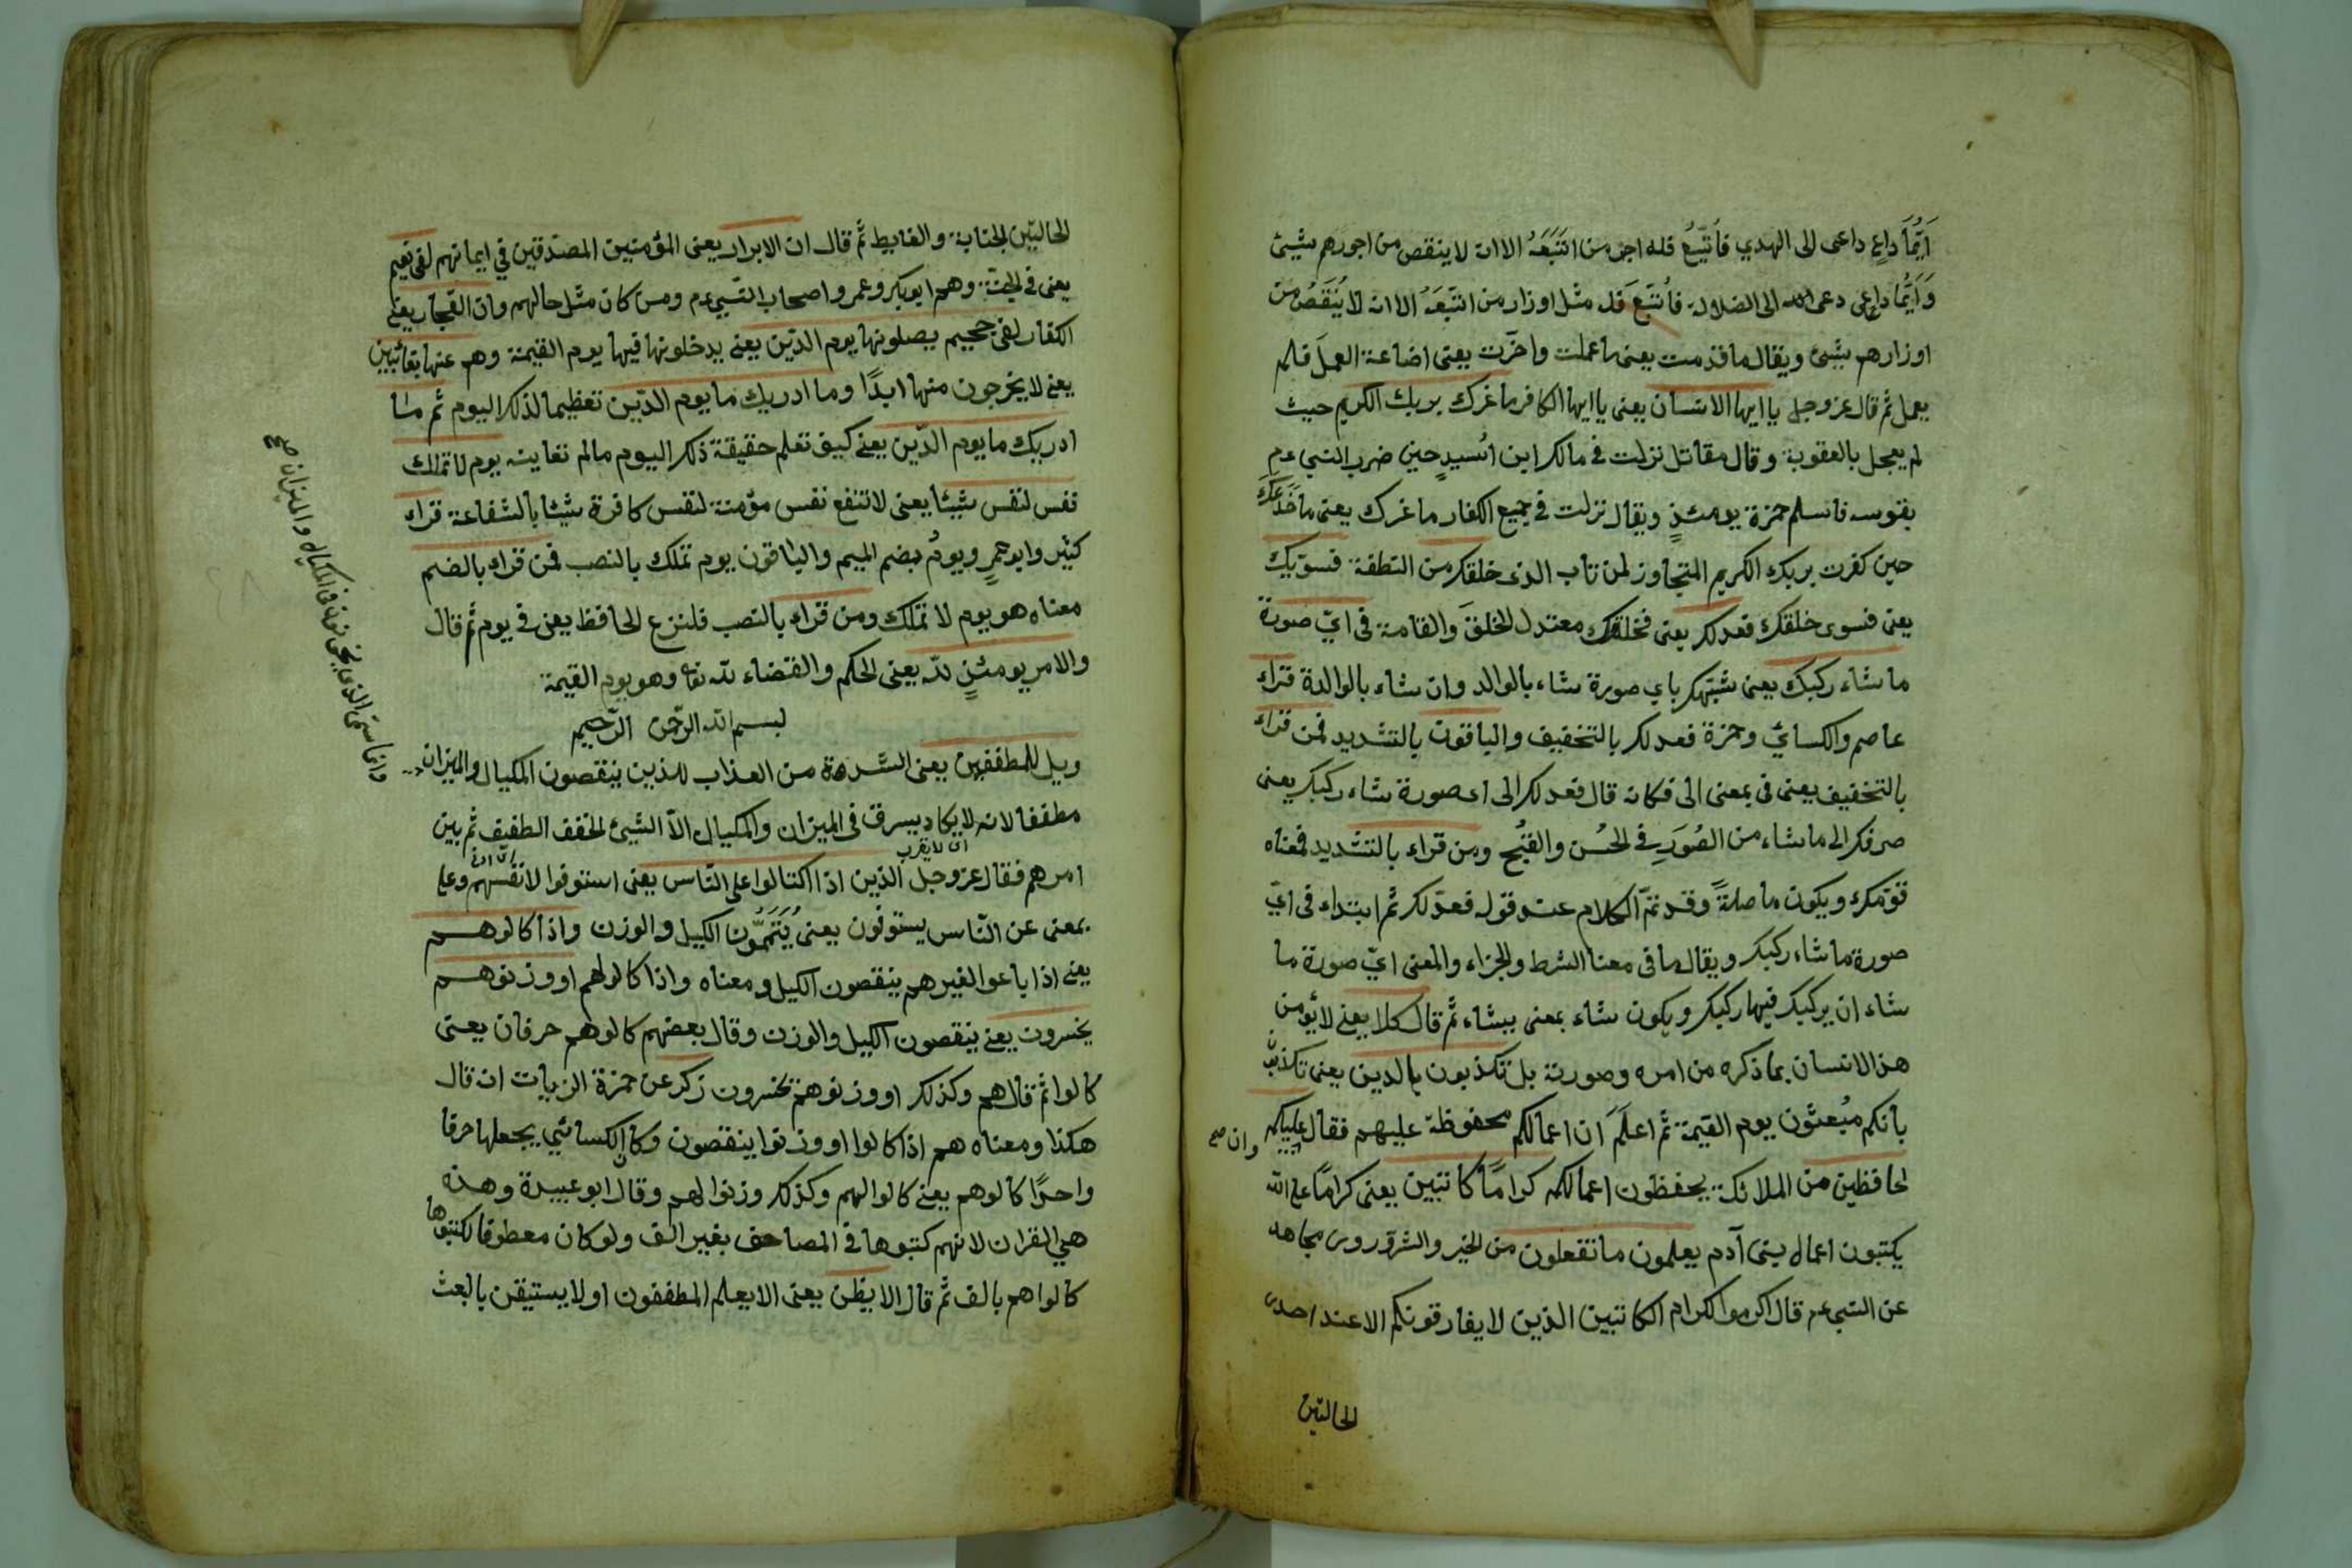 اَيُّمَا داعٍ داعى الى الهدي فاتُّبِعَ فله اجر من اتبَعَهُ الا انه لا ينقص من اجورهم بشيئ
وَاَيُّمَا داعى دعى الى الضلالة فاُتبِعَ فله مثل اوزار من اتبَعَهُ الا انه لا يُنقَصُ من
اوزارهم بشئ ويقال ما قدمت يعنى ما عملت واخّرت يعنى اضاعة العمل فلم
يعمل ثم قال عز وجل يا ايها الانسان يعنى يا ايها الكافر ما غرك بربك الكريم حيث
لم يعجل بالعقوبة وقال مقاتل نزلت فى مالك ابن اُسيدٍ حين ضرب النبي عم
بقوسه فاسلم حمزة يومئذٍ ويقال نزلت فى جميع الكفار ما غرك يعنى ما خَدَعَكَ
حين كفرت بربك الكريم المتجاوز لمن تاب الذى خلقك من النطفة فسوّيك
يعنى فسوى خلقك فعدلك يعنى فخلقك معتدل الخلق والقامة فى ايّ صورة
ما شاء ركبك يعنى شبّهك باي صورة شاء بالوالد وان شاء بالوالدة قراء
عاصم والكسائي وحمزة فعدلك بالتخفيف والباقون بالتشديد فمن قراء
بالتخفيف يعنى فى بمعنى الى فكانه قال فعدلك الى اى صورة شاء ركبك يعنى
صرفك الى ما شاء من الصُوَرِ فى الحُسن والقُبح ومن قراء بالتشديد فمعناه
قوّمك ويكون ما صلةً وقد تمّ الكلام عند قوله فعدّلك ثم ابتداء فى ايّ
صورة ما شاء ركبك ويقال ما فى معنا الشرط والجزاء والمعنى ايّ صورة ما
شاء ان يركبك فيها ركبك ويكون شاء بمعنى يشاء ثم قال كلا يعنى لا يؤمن
هذا الانسان بما ذكره من امره وصورته بل تكذبون بالدين يعنى تكذبون
بانكم مبُعثون يوم القيمة ثم اعلَمَ ان اعمالكم محفوظة عليهم فقال عليكم
وان صح
لحافظين من الملائكة يحفظون اعمالكم كرامًا كاتبين يعنى كرامًا على الله
يكتبون اعمال بنى آدم يعلمون ما تفعلون من الخير والشر وروى مجاهد
عن النبى عم قال اكرموا الكرام الكاتبين الذين لا يفارقونكم الا عند احدى
الحالتين
الحالتين الجنابة والغايط ثم قال ان الابرار يعنى المؤمنين المصدّقين في ايمانهم لفى نعيم
يعنى فى الجنة وهم ابوبكر وعمر واصحاب النبي عم ومن كان مثل حالهم وان الفجار يعنى
الكفار لفى جحيم يصلونها يوم الدين يعنى يدخلونها فيها يوم القيمة وهم عنها بغائبين
يعنى لا يخرجون منها ابدًا وما ادريك ما يوم الدّين تعظيما لذلك اليوم ثم ما
ادريك ما يوم الدّين يعنى كيف تعلم حقيقة ذلك اليوم ما لم تعاينه يوم لا تملك
نفس لنفس شيئا يعنى لا تنفع نفس مؤمنة لنفس كافرة شيئا بالشفاعة قراء
كثير وابو عمرٍ ويومُ بضم الميم والباقون يوم تملك بالنصب فمن قراء بالضم
معناه هو يوم لا تملك ومن قراء بالنصب فلنزع الحافظ يعنى فى يوم ثم قال
والامر يومئذٍ لله يعنى الحكم والقضاء لله تعا وهو يوم القيمة
بسم الله الرّحمن الرّحيم
ويل للمطففين يعنى الشدة من العذاب للذين ينقصون المكيال والميزان
وانما سمّى الذى يخون فى المكيال والميزان صح
مطففا لانه لا يكاد يسرق فى الميزان والمكيال الاّ الشيئ الخفف الطفيف ثم بين
امرهم فقال عز وجل الذين اذا اكتالوا على النّاس يعنى استوفوا لانفسهم وعلى
بمعنى عن النّاس يستوفون يعنى يُتَمِّمُّون الكيل والوزن واذا كالوهم
يعنى اذا باعوا لغيرهم ينقصون الكيل ومعناه واذا كالوا لهم او وزنوهم
يخسرون يعنى ينقصون الكيل والوزن وقال بعضهم كالوهم حرفان يعنى
كالوا ثم قال هم وكذلك او وزنوهم يخسرون ذكر عن حمزة الزيات انه قال
هكذا ومعناه هم اذا كالوا او وزنوا ينقصون وكان الكسائي يجعلها حرفا
واحدًا كالوهم يعنى كالوا لهم وكذلك وزنوا لهم وقال ابو عبيدة وهذه
هي القران لانهم كتبوها فى المصاحف بغير الف ولو كان معطوفا لكتبوها
كالوا هم بالف ثم قال الا يظن يعنى الا يعلم المطففون او لا يستيقن بالبعث